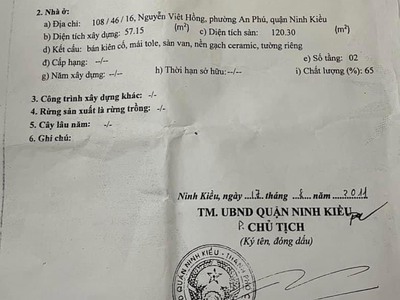 2. Nhà ở:
a) Địa chỉ: 108/46/16, Nguyễn Việt Hồng, phường An Phú, quận Ninh Kiều
b) Diện tích xây dựng: 57.15 (m²) c) Diện tích sàn: 120.30 (m²)
d) Kết cấu: bán kiên cố, mái tole, sàn ván, nền gạch ceramic, tường riêng
đ) Cấp hạng: --/-- e) Số tầng: 02
g) Năm xây dựng: --/-- h) Thời hạn sở hữu: --/-- i) Chất lượng (%): 65
3. Công trình xây dựng khác: -/-
4. Rừng sản xuất là rừng trồng: -/-
5. Cây lâu năm: -/-
6. Ghi chú:
Ninh Kiều, ngày 17 tháng 8 năm 2011
TM. UBND QUẬN NINH KIỀU
P. CHỦ TỊCH
(Ký tên, đóng dấu)
QUẬN NINH KIỀU - THÀNH PHỐ